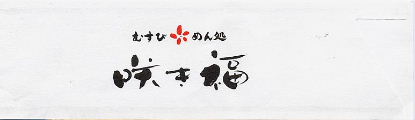 むすび めん処
咲き福